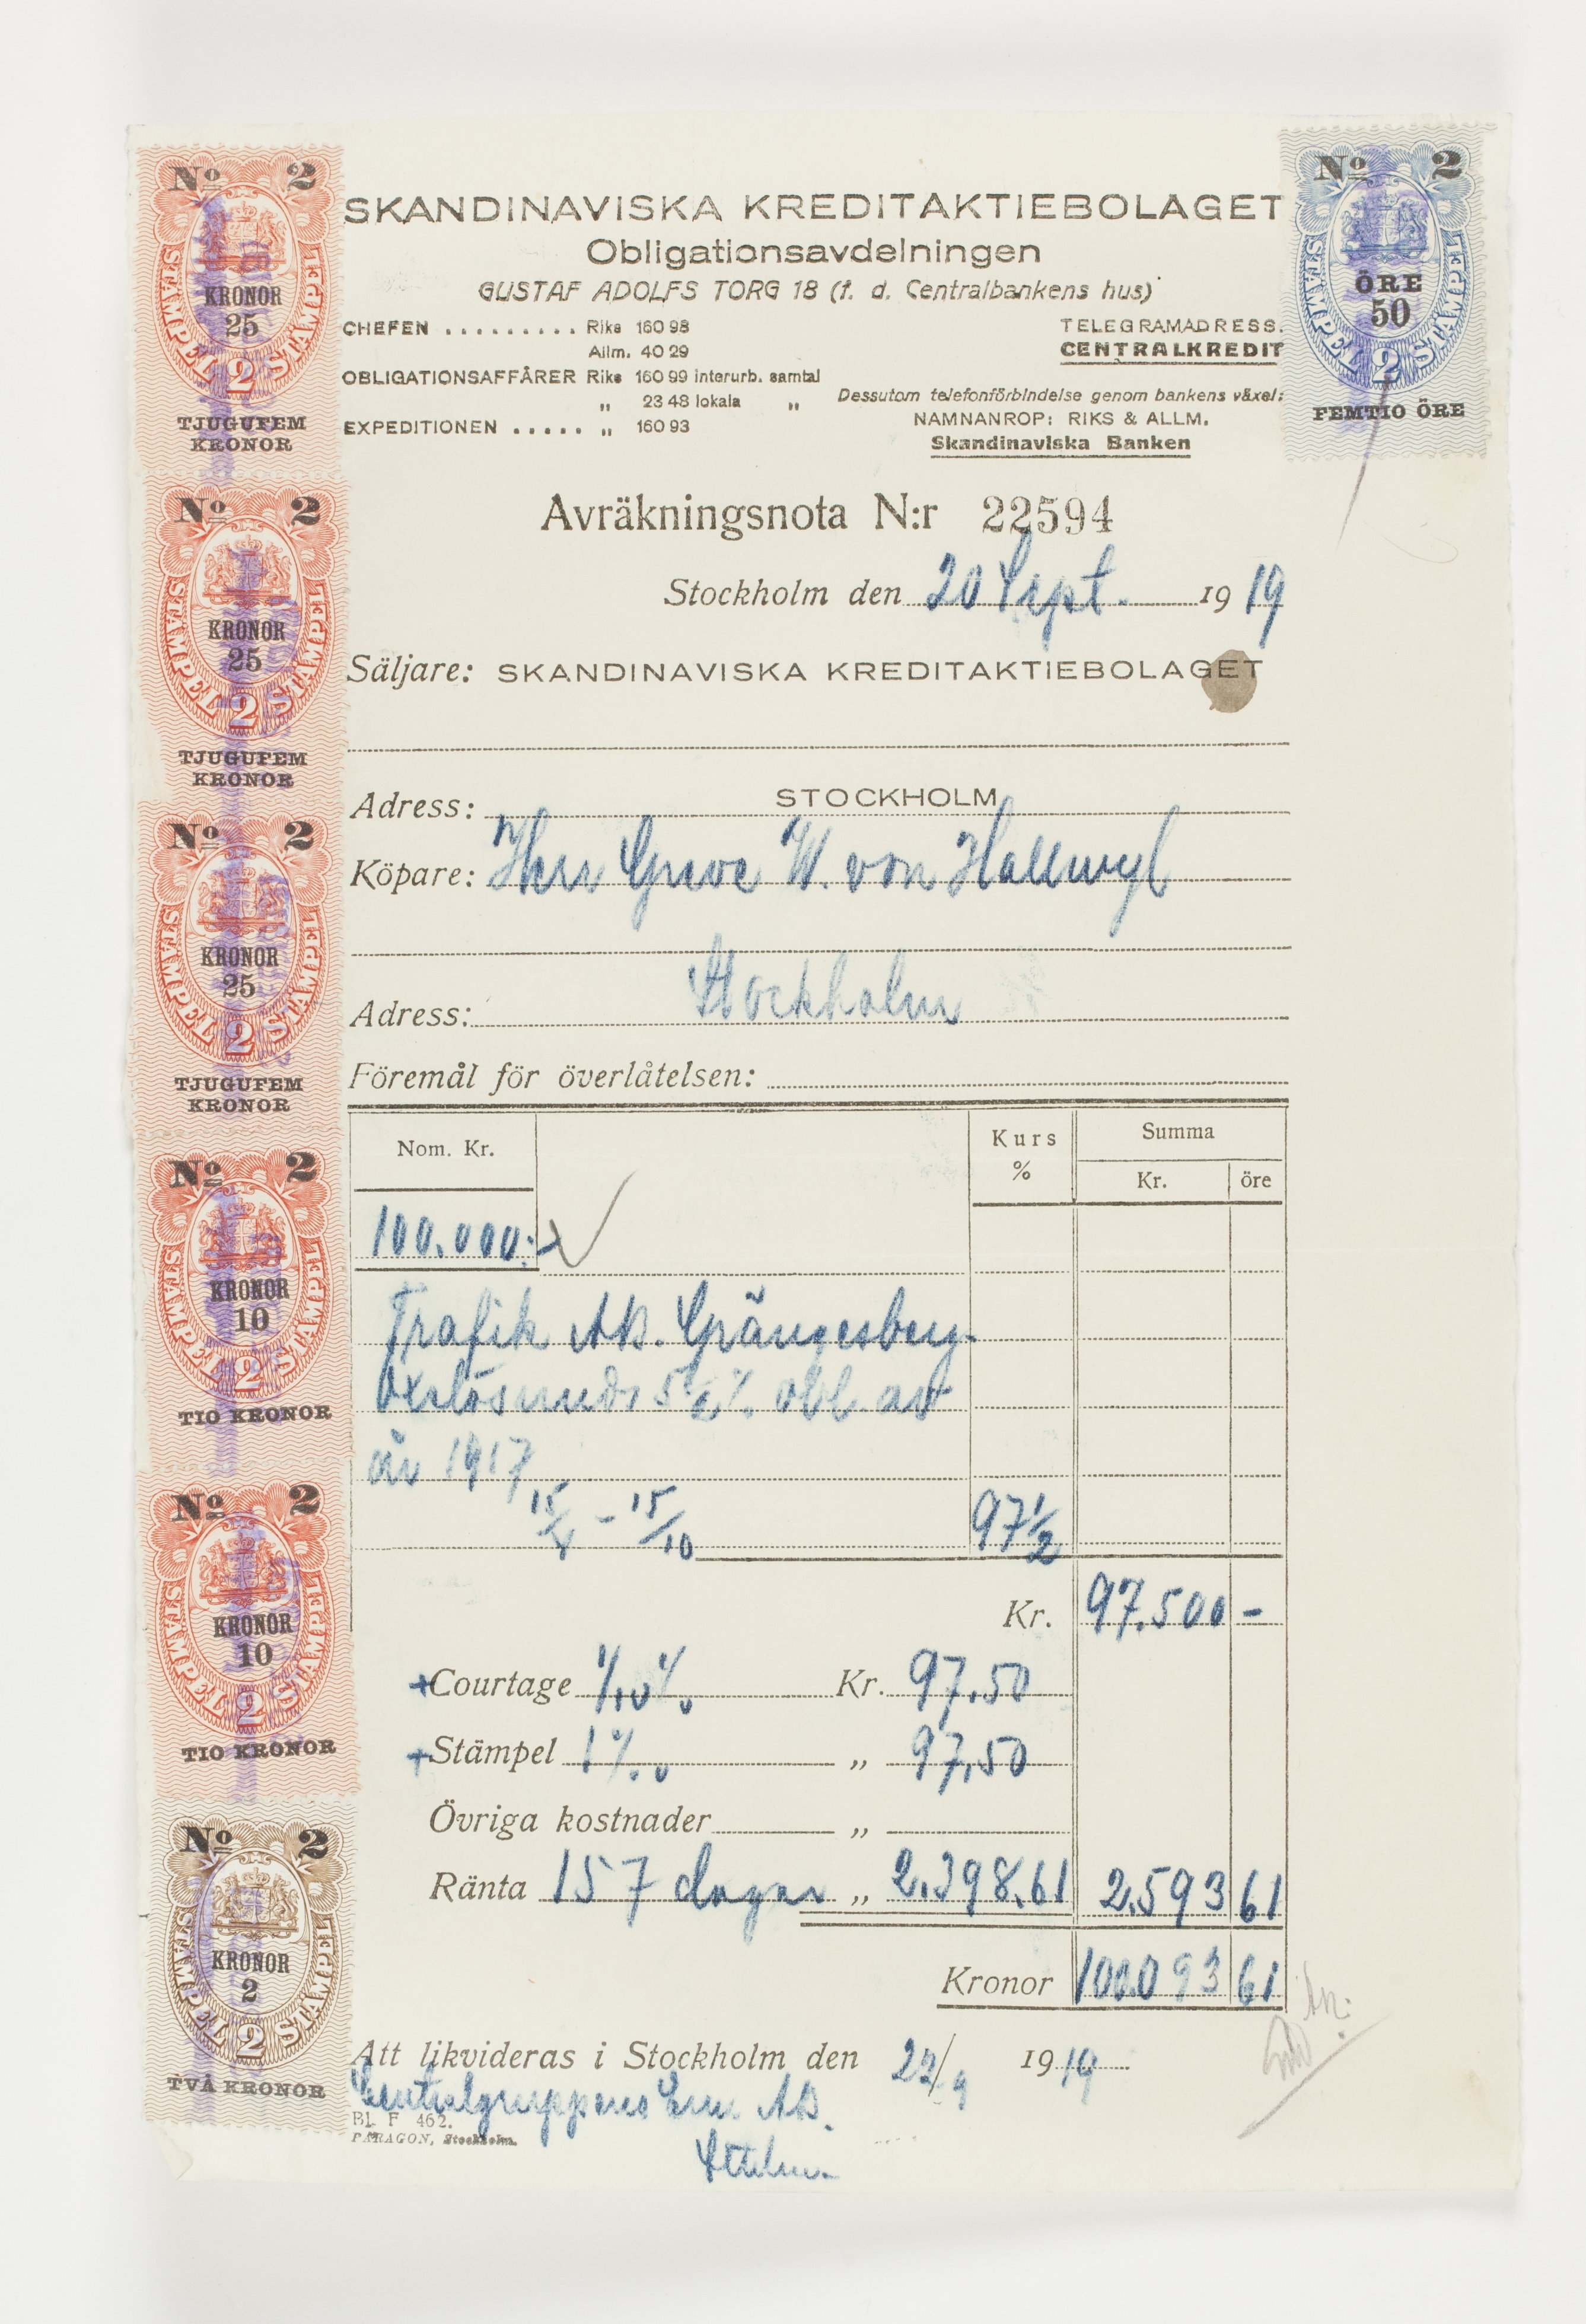 SKANDINAVISKA KREDITAKTIEBOLAGET
Obligationsavdelningen
GUSTAF ADOLFS TORG 18 (f. d. Centralbankens hus)
CHEFEN ......... Riks 160 98
Allm. 40 29
OBLIGATIONSAFFÄRER Riks 160 99 interurb. samtal
„ 23 48 lokala „
EXPEDITIONEN ..... „ 160 93
TELEGRAMADRESS.
CENTRALKREDIT
Dessutom telefonförbindelse genom bankens växel:
NAMNANROP: RIKS & ALLM.
Skandinaviska Banken
No 2
ÖRE
50
STÄMPEL 2 STÄMPEL
FEMTIO ÖRE
No 2
KRONOR
25
STÄMPEL 2 STÄMPEL
TJUGUFEM
KRONOR
No 2
KRONOR
25
STÄMPEL 2 STÄMPEL
TJUGUFEM
KRONOR
No 2
KRONOR
25
STÄMPEL 2 STÄMPEL
TJUGUFEM
KRONOR
No 2
KRONOR
10
STÄMPEL 2 STÄMPEL
TIO KRONOR
No 2
KRONOR
10
STÄMPEL 2 STÄMPEL
TIO KRONOR
No 2
KRONOR
2
STÄMPEL 2 STÄMPEL
TVÅ KRONOR
Avräkningsnota N:r 22594
Stockholm den 20 Sept. 1919
Säljare: SKANDINAVISKA KREDITAKTIEBOLAGET
Adress: STOCKHOLM
Köpare: Herr Greve W. von Hallwyl
Adress: Stockholm
Föremål för överlåtelsen:
Nom. Kr. Kurs % Summa
Kr. öre
100.000:-
Trafik AB. Grängesberg-
Oxelösunds 5½% obl. av
år 1917
15/4 - 15/10 97½
Kr. 97.500 -
+Courtage 1/10% Kr. 97.50
+Stämpel 1‰ „ 97,50
Övriga kostnader „
Ränta 157 dagar „ 2.398.61 2.593 61
Kronor 100.093 61
Att likvideras i Stockholm den 22/9 1919
Centralgruppens Em. AB.
Bl. F 462.
PARAGON, Stockholm.
Sthlm.